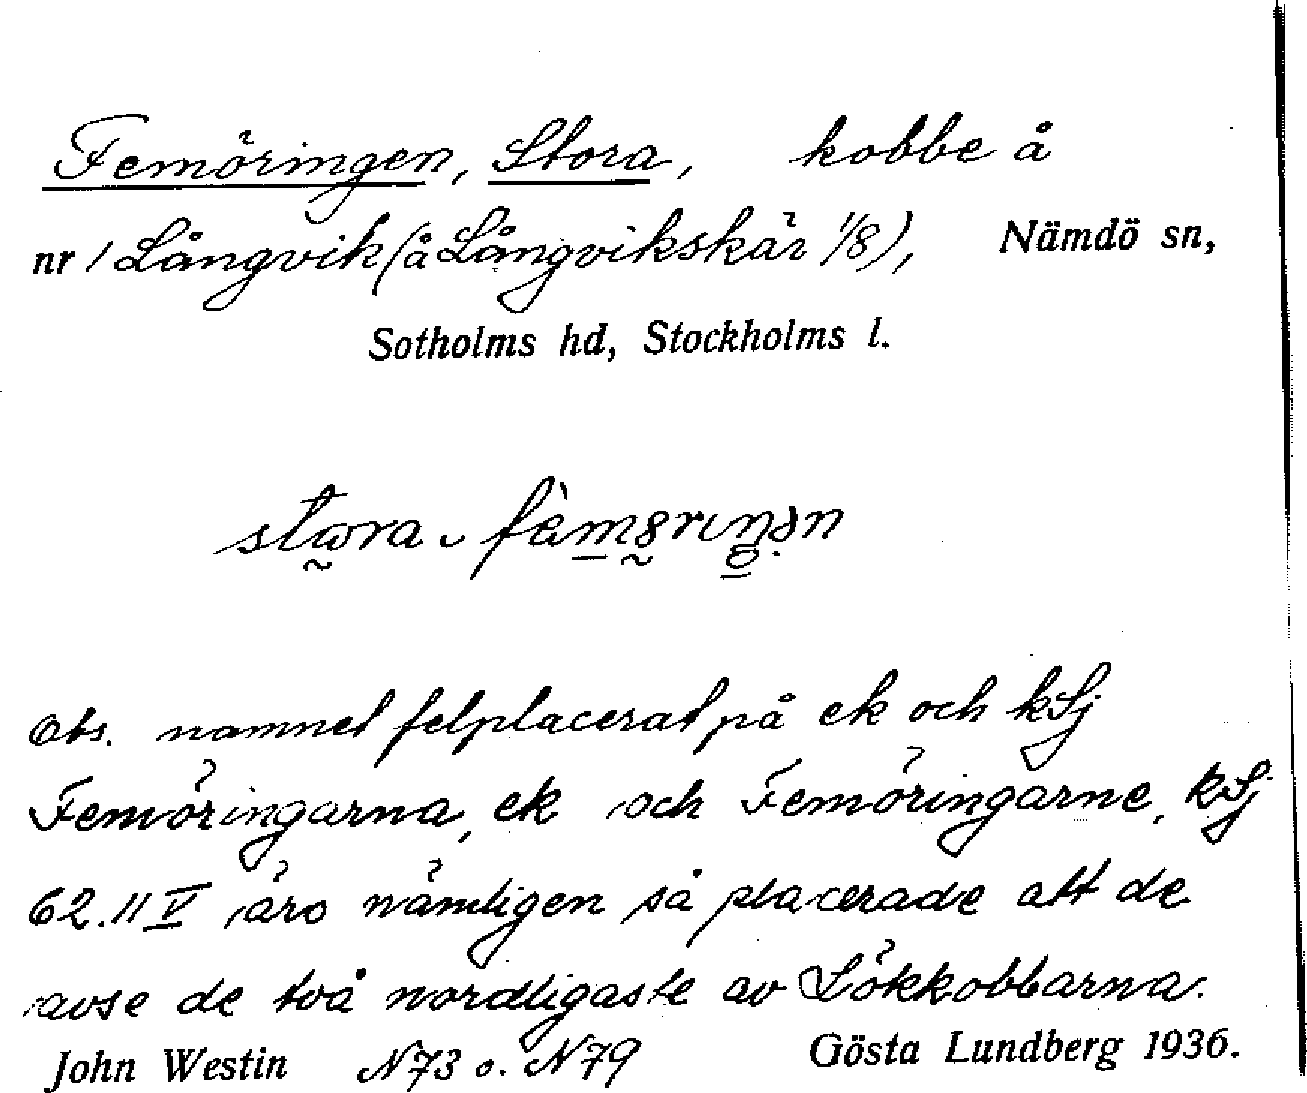 Femöringen, Stora, kobbe å
nr 1 Långvik (å Långvikskär 1/8), Nämdö sn,
Sotholms hd, Stockholms l.
Obs. namnet felplacerat på ek och kSj
Femöringarna, ek och Femöringarne, kSj
62.II V äro nämligen så placerade att de
avse de två nordligaste av Lökkobbarna.
John Westin N73 o. N79 Gösta Lundberg 1936.